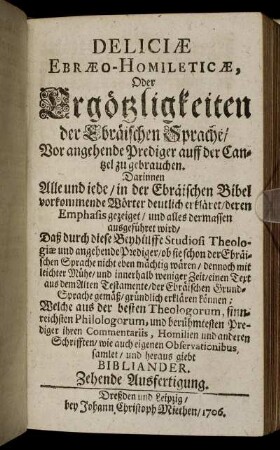 DELICIÆ
EBRÆO-HOMILETICÆ,
Oder
Ergötzligkeiten
der Ebräischen Sprache/
Vor angehende Prediger auff der Can-
tzel zu gebrauchen.
Darinnen
Alle und iede/in der Ebräischen Bibel
vorkommende Wörter deutlich erkläret/deren
Emphasis gezeiget/und alles dermassen
ausgeführet wird/
Daß durch diese Beyhülffe Studiosi Theolo-
giæ und angehende Prediger/ob sie schon der Ebräi-
schen Sprache nicht eben mächtig wären/dennoch mit
leichter Mühe/und innerhalb weniger Zeit/einen Text
aus dem Alten Testamente/der Ebräischen Grund-
Sprache gemäß/gründlich erklären können;
Welche aus der besten Theologorum, sinn-
reichsten Philologorum, und berühmtesten Pre-
diger ihren Commentariis, Homilien und anderen
Schrifften/wie auch eigenen Observationibus,
samlet/und heraus giebt
BIBLIANDER.
Zehende Ausfertigung.
Dreßden und Leipzig/
bey Johann Christoph Miethen/1706.